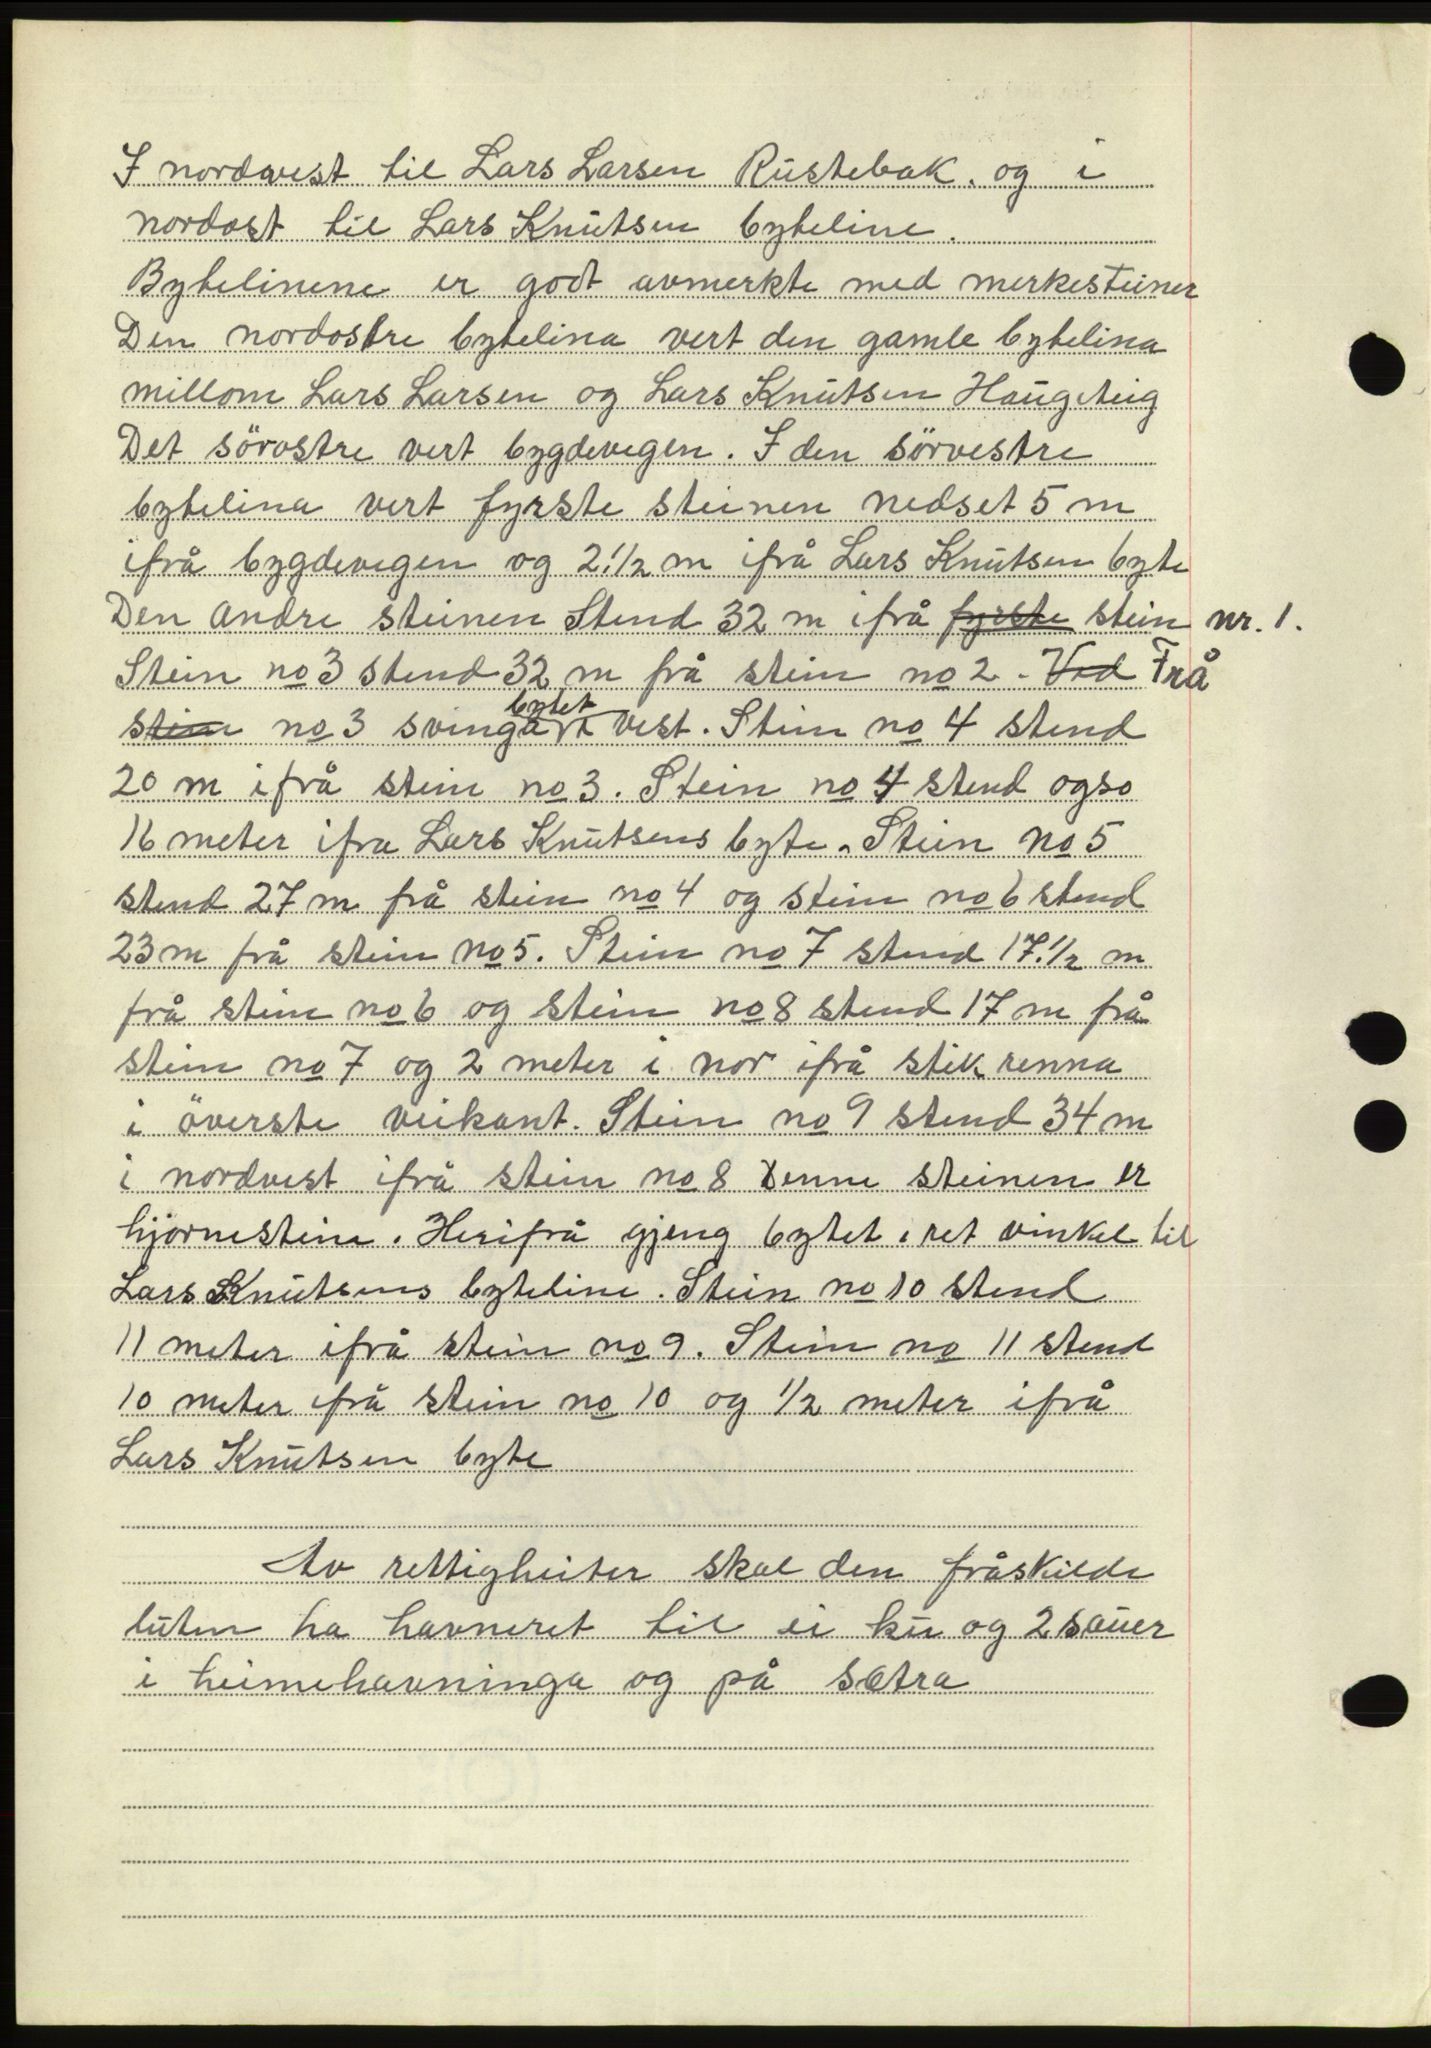 I nordvest til Lars Larsen Rustebak. og i
nordost til Lars Knutsen byteline.
Bytelinene er godt avmerkte med merkesteiner
Den nordostre bytelina vert den gamle bytelina
millom Lars Larsen og Lars Knutsen Haugteig
Det sörostre vert bygdevegen. I den sörvestre
bytelina vert fyrste steinen nedset 5 m
ifrå bygdevegen og 2.1/2 m ifrå Lars Knutsen byte
Den andre steinen Stend 32 m ifrå fyrste stein nr. 1.
Stein no 3 stend 32 m frå stein no 2. Ved Frå
bytet
stein no 3 svingar vest. Stein no 4 stend
20 m ifrå stein no 3. Stein no 4 stend ogso
16 meter ifra Lars Knutsens byte. Stein no 5
stend 27 m frå stein no 4 og stein no 6 stend
23 m frå stein no 5. Stein no 7 stend 17.1/2 m
frå stein no 6 og stein no 8 stend 17 m frå
stein no 7 og 2 meter i nor ifrå stikrenna
i överste veikant. Stein no 9 stend 34 m
i nordvest ifrå stein no 8 Denne steinen er
hjornestein. Herifrå gjeng bytet i ret vinkel til
Lars Knutsens byteline. Stein no 10 stend
11 meter ifrå stein no 9. Stein no 11 stend
10 meter ifrå stein no 10 og 1/2 meter ifrå
Lars Knutsen byte
Av rettigheiter skal den fråskilde
luten ha havneret til ei ku og 2 sauer
i heimehavninga og på sætra